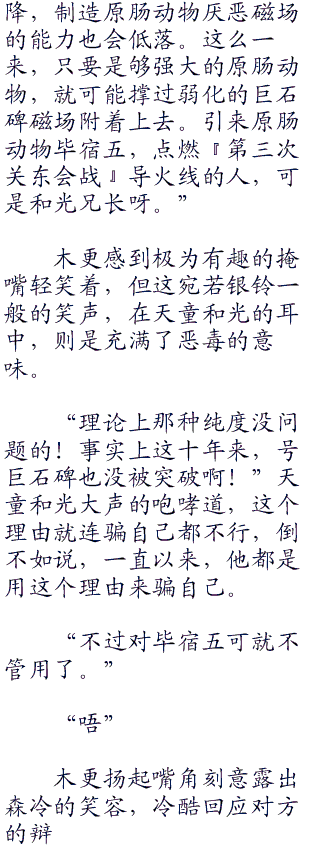 降，制造原肠动物厌恶磁场
的能力也会低落。这么一
来，只要是够强大的原肠动
物，就可能撑过弱化的巨石
碑磁场附着上去。引来原肠
动物毕宿五，点燃『第三次
关东会战』导火线的人，可
是和光兄长呀。”
木更感到极为有趣的掩
嘴轻笑着，但这宛若银铃一
般的笑声，在天童和光的耳
中，则是充满了恶毒的意
味。
“理论上那种纯度没问
题的！事实上这十年来，号
巨石碑也没被突破啊！”天
童和光大声的咆哮道，这个
理由就连骗自己都不行，倒
不如说，一直以来，他都是
用这个理由来骗自己。
“不过对毕宿五可就不
管用了。”
“唔”
木更扬起嘴角刻意露出
森冷的笑容，冷酷回应对方
的辩